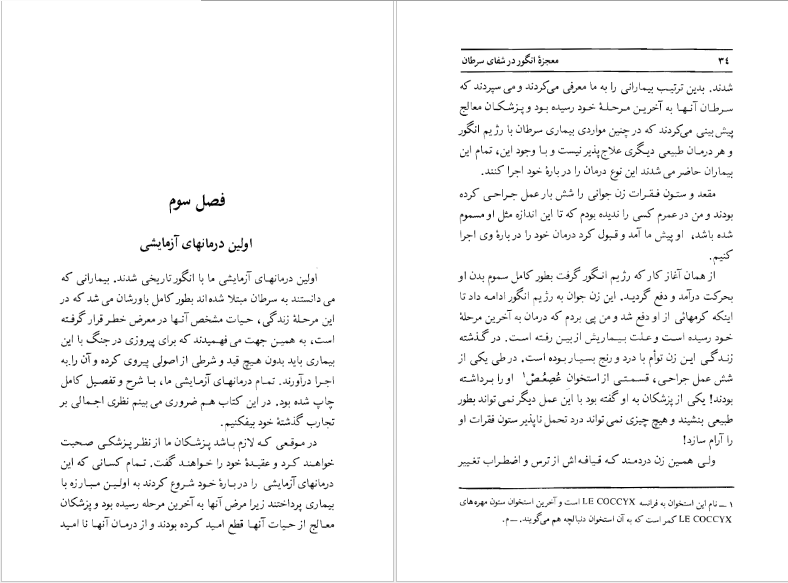 فصل سوم
اولین درمانهای آزمایشی
اولین درمانهای آزمایشی ما با انگور تاریخی شدند. بیمارانی که
می دانستند به سرطان مبتلا شده اند بطور کامل باورشان می شد که در
این مرحلهٔ زندگی، حیات مشخص آنها در معرض خطر قرار گرفته
است، به همین جهت می فهمیدند که برای پیروزی در جنگ با این
بیماری باید بدون هیچ قید و شرطی از اصولی پیروی کرده و آن را به
اجرا درآورند. تمام درمانهای آزمایشی ما، با شرح و تفصیل کامل
چاپ شده بود. در این کتاب هم ضروری می بینم نظری اجمالی بر
تجارب گذشتهٔ خود بیفکنیم.
در موقعی که لازم باشد پزشکان ما از نظر پزشکی صحبت
خواهند کرد و عقیدهٔ خود را خواهند گفت. تمام کسانی که این
درمانهای آزمایشی را دربارهٔ خود شروع کردند به اولین مبارزه با
بیماری پرداختند زیرا مرض آنها به آخرین مرحله رسیده بود و پزشکان
معالج از حیات آنها قطع امید کرده بودند و از درمان آنها نا امید
۳۴ معجزهٔ انگور در شفای سرطان
شدند. بدین ترتیب بیمارانی را به ما معرفی می‌کردند و می سپردند که
سرطان آنها به آخرین مرحلهٔ خود رسیده بود و پزشکان معالج
پیش بینی می‌کردند که در چنین مواردی بیماری سرطان با رژیم انگور
و هر درمان طبیعی دیگری علاج‌پذیر نیست و با وجود این، تمام این
بیماران حاضر می شدند این نوع درمان را در بارهٔ خود اجرا کنند.
مقعد و ستون فقرات زن جوانی را شش بار عمل جراحی کرده
بودند و من در عمرم کسی را ندیده بودم که تا این اندازه مثل او مسموم
شده باشد، او پیش ما آمد و قبول کرد درمان خود را در بارهٔ وی اجرا
کنیم.
از همان آغاز کار که رژیم انگور گرفت بطور کامل سموم بدن او
بحرکت درآمد و دفع گردید. این زن جوان به رژیم انگور ادامه داد تا
اینکه کرمهائی از او دفع شد و من پی بردم که درمان به آخرین مرحلهٔ
خود رسیده است و علت بیماریش از بین رفته است. در گذشته
زندگی این زن توأم با درد و رنج بسیار بوده است. در طی یکی از
شش عمل جراحی، قسمتی از استخوانِ عُصعُصْ۱ او را برداشته
بودند! یکی از پزشکان به او گفته بود با این عمل دیگر نمی تواند بطور
طبیعی بنشیند و هیچ چیزی نمی تواند درد تحمل ناپذیر ستون فقرات او
را آرام سازد!
ولی همین زن دردمند که قیافه اش از ترس و اضطراب تغییر
۱ ــ نام این استخوان به فرانسه LE COCCYX است و آخرین استخوان ستون مهره‌های
کمر است که به آن استخوان دنبالچه هم می‌گویند. LE COCCYX ــ م.